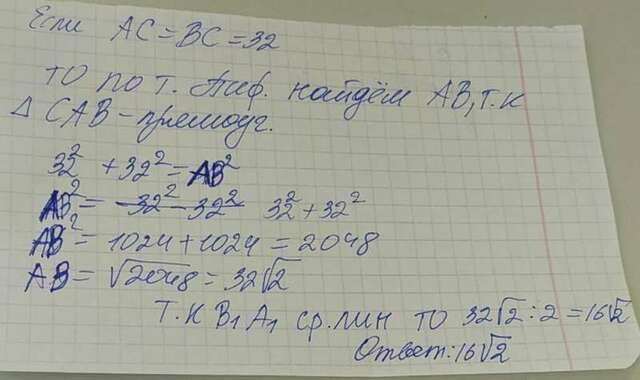 Если AC = BC = 32
то по т. Пиф. найдём AB, т.к
△ CAB - прямоуг.
32² + 32² = AB²
AB² = -32² - 32² 32² + 32²
AB² = 1024 + 1024 = 2048
AB = √2048 = 32√2
Т.К B₁A₁ ср. лин то 32√2 : 2 = 16√2
Ответ: 16√2